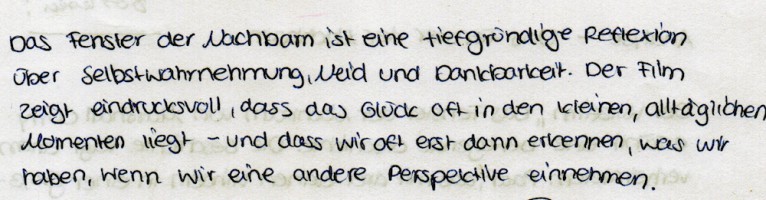 Das Fenster der Nachbarn ist eine tiefgründige Reflexion
über Selbstwahrnehmung, Neid und Dankbarkeit. Der Film
zeigt eindrucksvoll, dass das Glück oft in den kleinen, alltäglichen
Momenten liegt – und dass wir oft erst dann erkennen, was wir
haben, wenn wir eine andere Perspektive einnehmen.